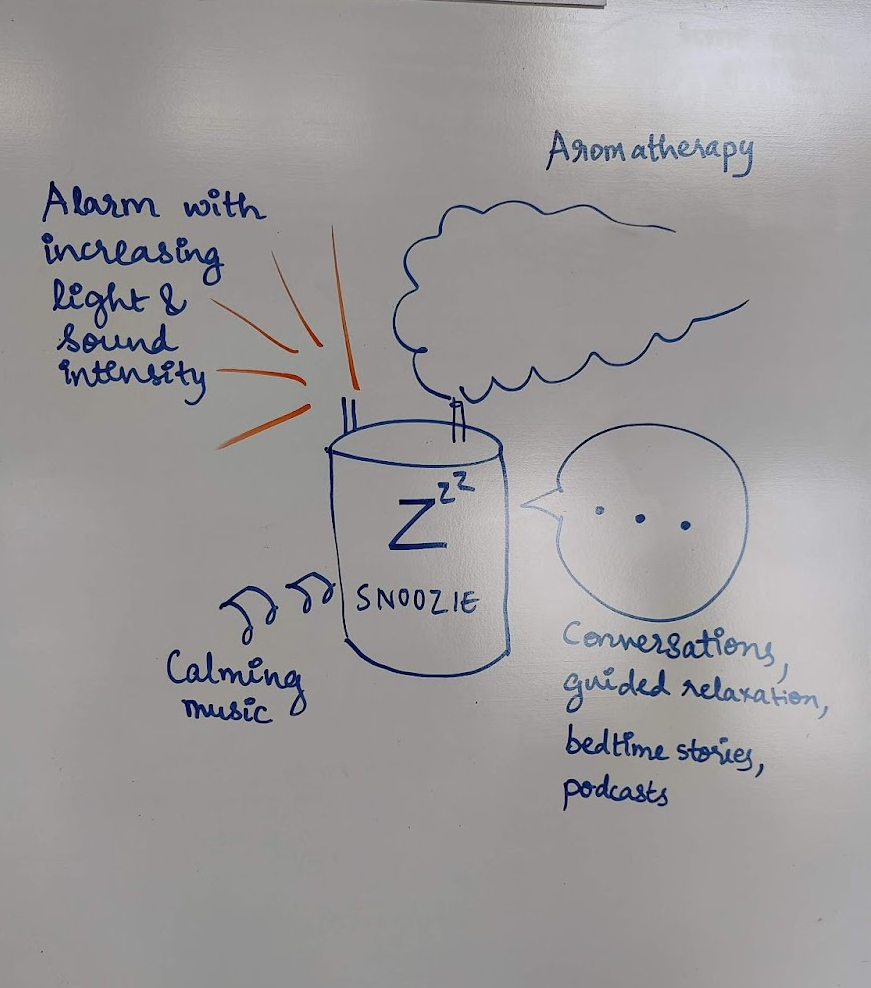 Aromatherapy
Alarm with
increasing
light &
sound
intensity
Zzz
SNOOZIE
Calming
music
Conversations,
guided relaxation,
bedtime stories,
podcasts